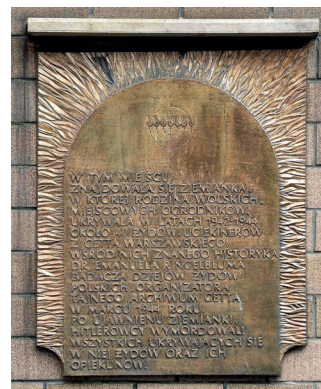 W TYM MIEJSCU
ZNAJDOWAŁA SIĘ ZIEMIANKA,
W KTÓREJ RODZINA WOLSKICH,
MIEJSCOWYCH OGRODNIKÓW,
UKRYWAŁA W LATACH 1942-1944
OKOŁO ŻYDÓW, UCIEKINIERÓW
Z GETTA WARSZAWSKIEGO.
WŚRÓD NICH ZNANEGO HISTORYKA
DR EMANUELA RINGELBLUMA
BADACZA DZIEJÓW ŻYDÓW
POLSKICH, ORGANIZATORA
TAJNEGO ARCHIWUM GETTA.
W MARCU 1944 ROKU
PO UJAWNIENIU ZIEMIANKI,
HITLEROWCY WYMORDOWALI
WSZYSTKICH UKRYWAJĄCYCH SIĘ
W NIEJ ŻYDÓW ORAZ ICH
OPIEKUNÓW.